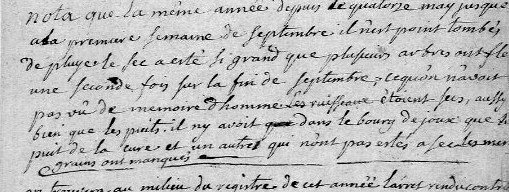 nota que la même année depuis le quatorze may jusque
a la premiere semaine de septembre il n'est point tombés
de pluye le sec a esté si grand que plusieurs arbres ont fle
une seconde fois sur la fin de septembre, ce qu'on n'avoit
pas vû de memoire d'homme les ruisseaux étoient secs, aussy
bien que les puits. il ny avoit que dans le bourg de joux que le
puit de la cure et un autre qui n'ont pas estés a sec les menus
grains ont manqués
au milieu du registre de cet année